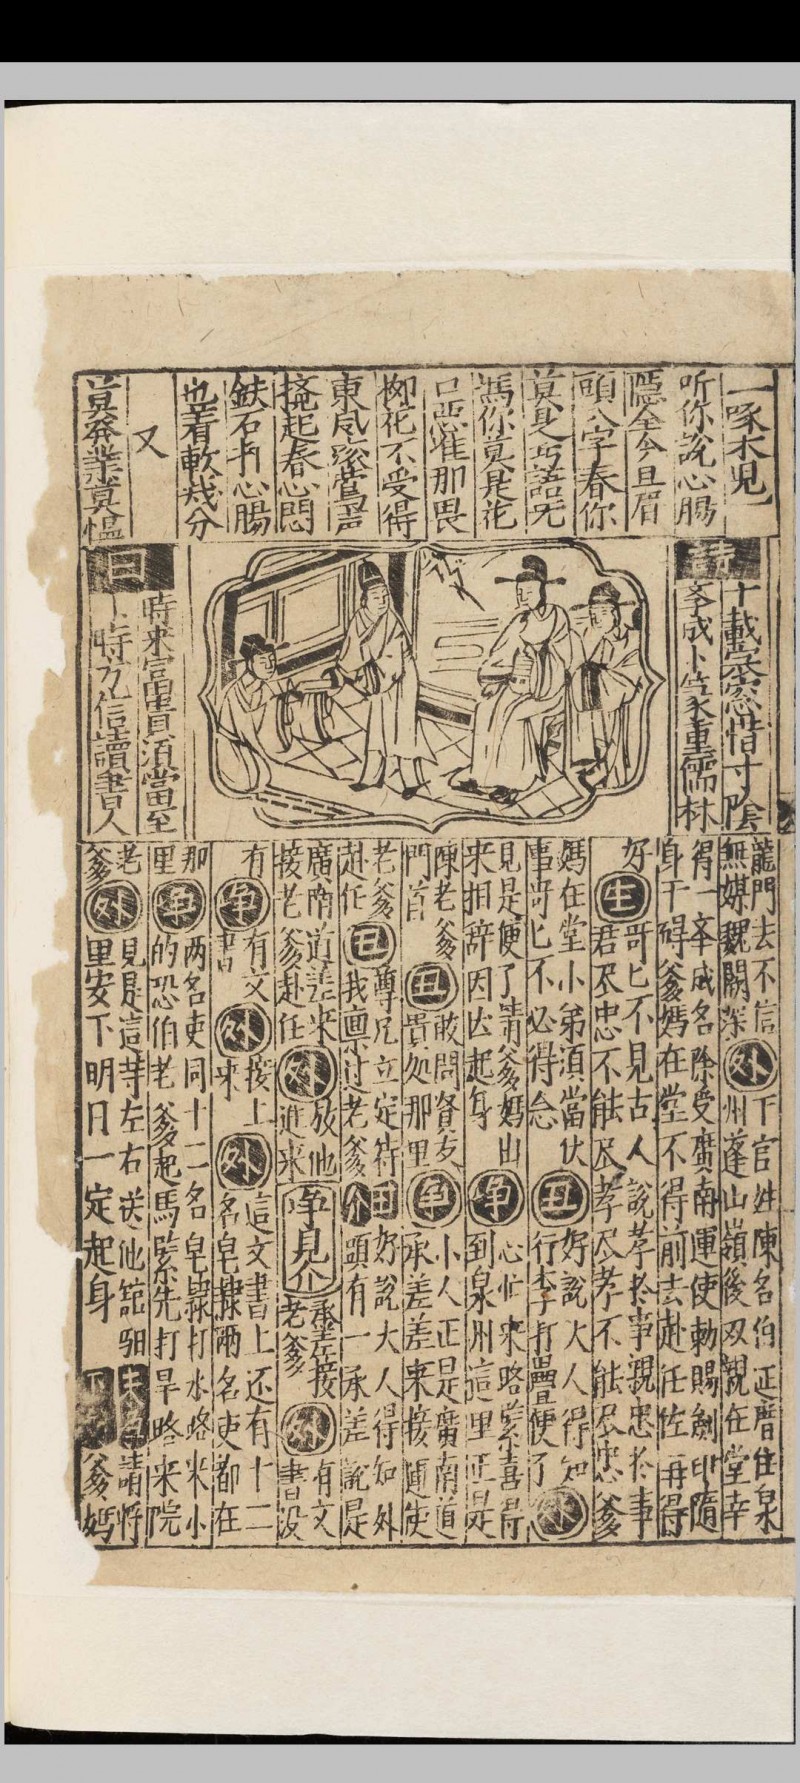 一啄木兒
听你說心腸
隱全今旦眉
頭八字春你
莫見巧語
馮你莫是花
口惡准那畏
柳花不受得
東風鶯声
起春心悶
鉄石打心腸
也着軟幾分
又
莫莽業莫慍
詩
十載寒窓惜寸陰
孝成卜筭重儒林
曰
時來富貴須當至
卜時方信讀書人
龍門去不信
無媒魏闕深
外
下官姓陳名伯延厝住泉
州蓬山嶺後双親在堂幸
得一孝成名除受廣南運使勅賜劍印隨
身干碍爹媽在堂不得前去赴任佐再得
好
生
哥匕不見古人說孝於事親忠於事
君尽忠不能尽孝尽孝不能尽忠爹
媽在堂小弟須當伏
事哥匕不必得念
丑
好說大人得知
行李打疊便了
外
見是便了請爹媽出
來相辞因以起身
净
心忙來路緊喜得
到泉州這里正是
陳老爹
門首
丑
敢問賢友
貴処那里
净
小人正是廣南道
承差差來接運使
老爹
赴任
丑
尊兄立定待
我禀过老爹
介
丑
好說大人得知外
頭有一承差說是
廣南道差來
接老爹赴任
外
放他
進來
净見介
承差接
老爹
外
有文
書没
有
净
有文
書
外
接上
來
外
這文書上还有十二
名皂隸兩名吏都在
那
里
净
两名吏同十二名皂隸打水路來小
的恐伯老爹起馬緊先打旱路來院
老
爹
外
見是這等左右送他舘驲
里安下明日一定起身
請將
爹媽